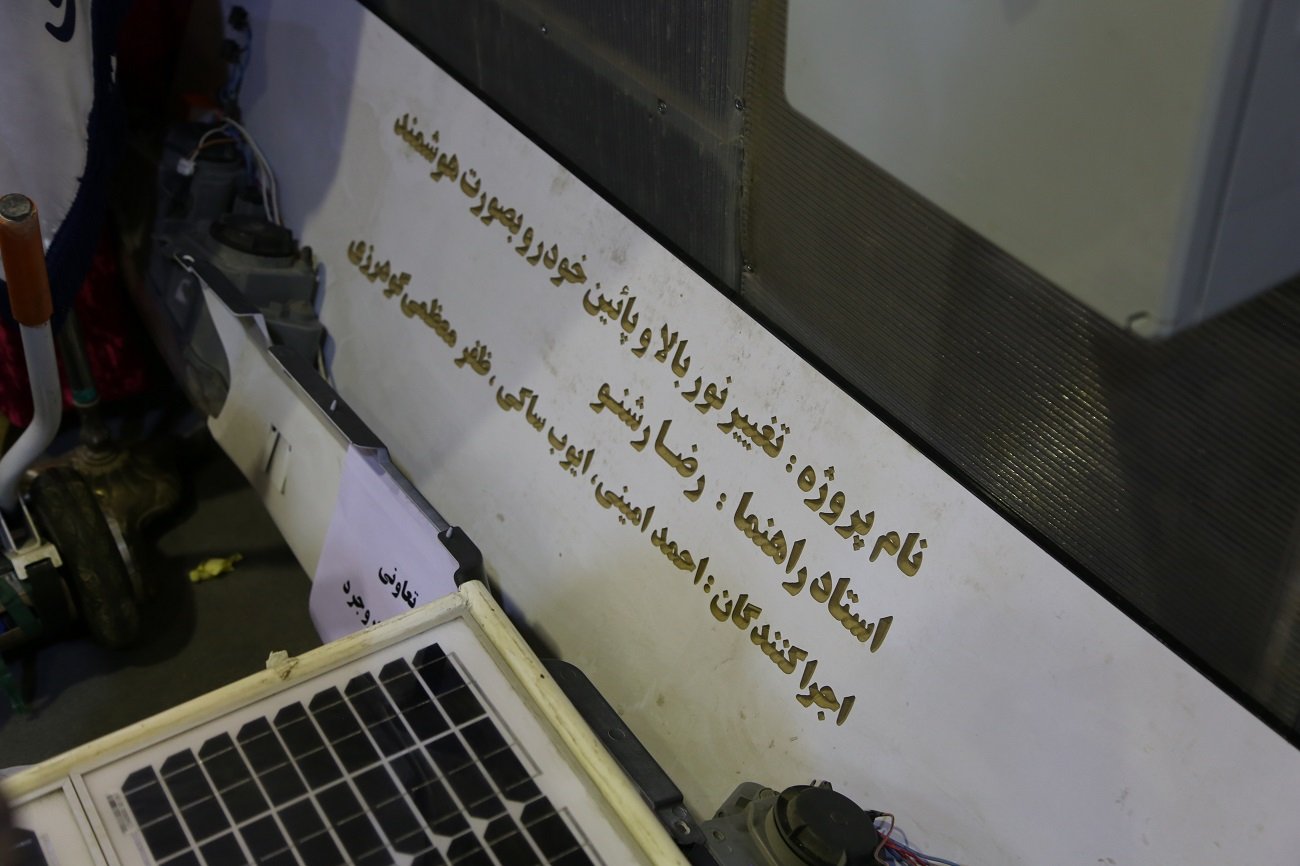 نام پروژه : تغییر نور بالا و پائین خودرو بصورت هوشمند
استاد راهنما : رضا رشنو
اجرا کنندگان : احمد امینی ، ایوب ساکی ، ظفر معظمی گودرزی
تعاونی